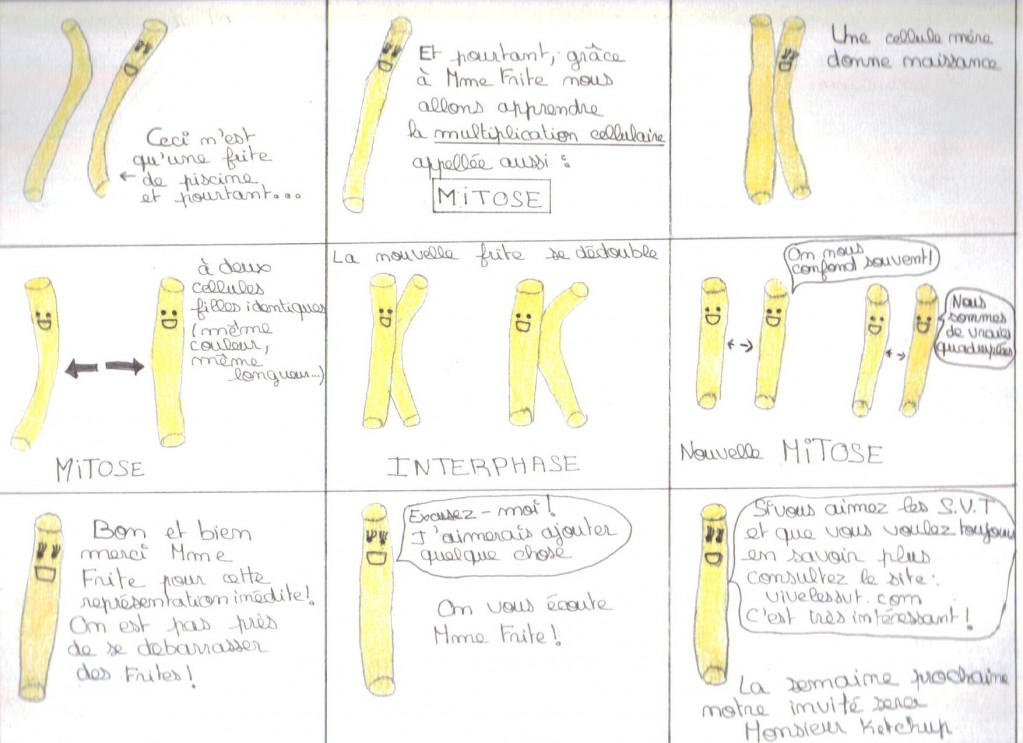 Ceci n'est
qu'une frite
de piscine
et pourtant...
Et pourtant, grâce
à Mme Frite nous
allons apprendre
la multiplication cellulaire
appellée aussi :
MiTOSE
Une cellule mère
donne naissance
à deux
cellules
filles identiques
(même
couleur,
même
longueur...)
MiTOSE
La nouvelle frite se dédouble
INTERPHASE
On nous
confond souvent!
Nous
sommes
de vraies
quadruplées
Nouvelle MiTOSE
Bon et bien
merci Mme
Frite pour cette
représentation inédite!
On est pas près
de se debarrasser
des Frites!
Excusez-moi!
J'aimerais ajouter
quelque chose
On vous écoute
Mme Frite!
Si vous aimez les S.V.T
et que vous voulez toujours
en savoir plus
consultez le site:
vivelessvt.com
C'est très intéressant!
La semaine prochaine
notre invité sera
Monsieur Ketchup